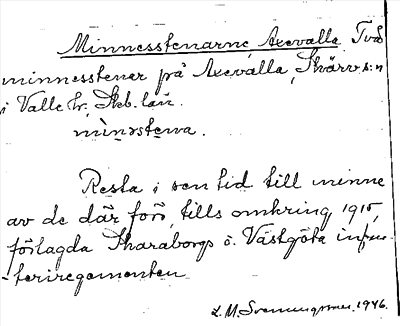 Minnesstenarne, Axevalla. Två
minnesstener på Axevalla, Skärvs:n
i Valle hr, Skb. län.
mìnǝstena.
Resta i sen tid till minne
av de där förö, tills omkring 1915,
förlagda Skaraborgs o. Västgöta infan-
teriregementen
L. M. Svenungsson. 1946.